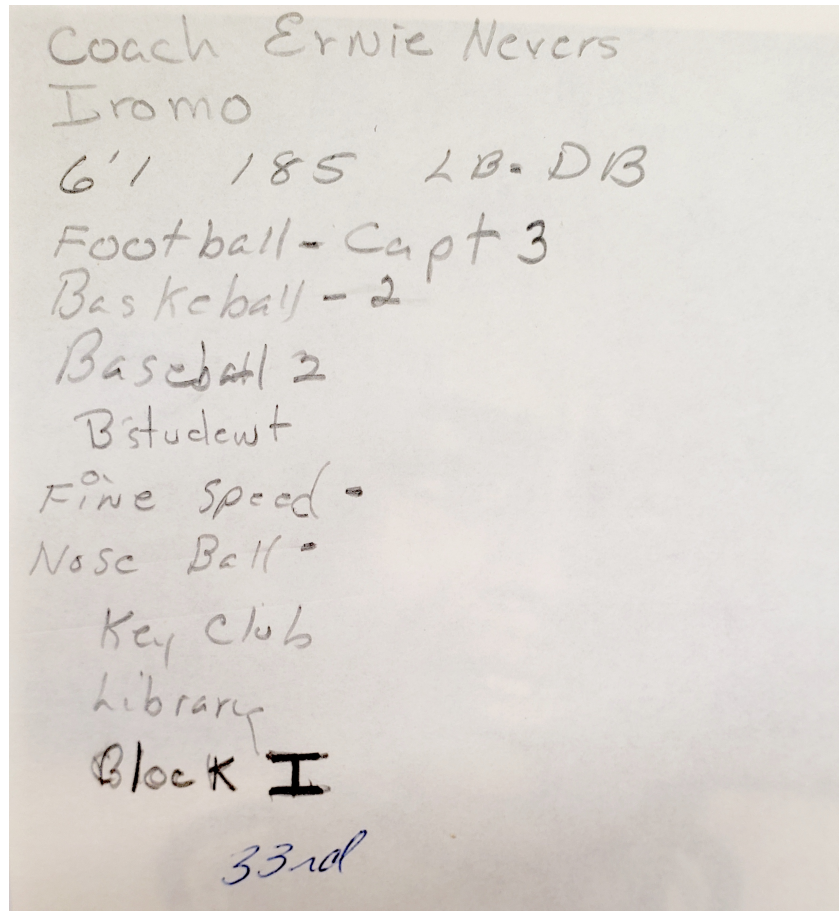 Coach Ernie Nevers
Iromo
6'1 185 LB. DB
Football - Capt 3
Baskeball - 2
Baseball 2
B student
Fine Speed -
Nose Ball -
Key Club
Library
Block I
33rd